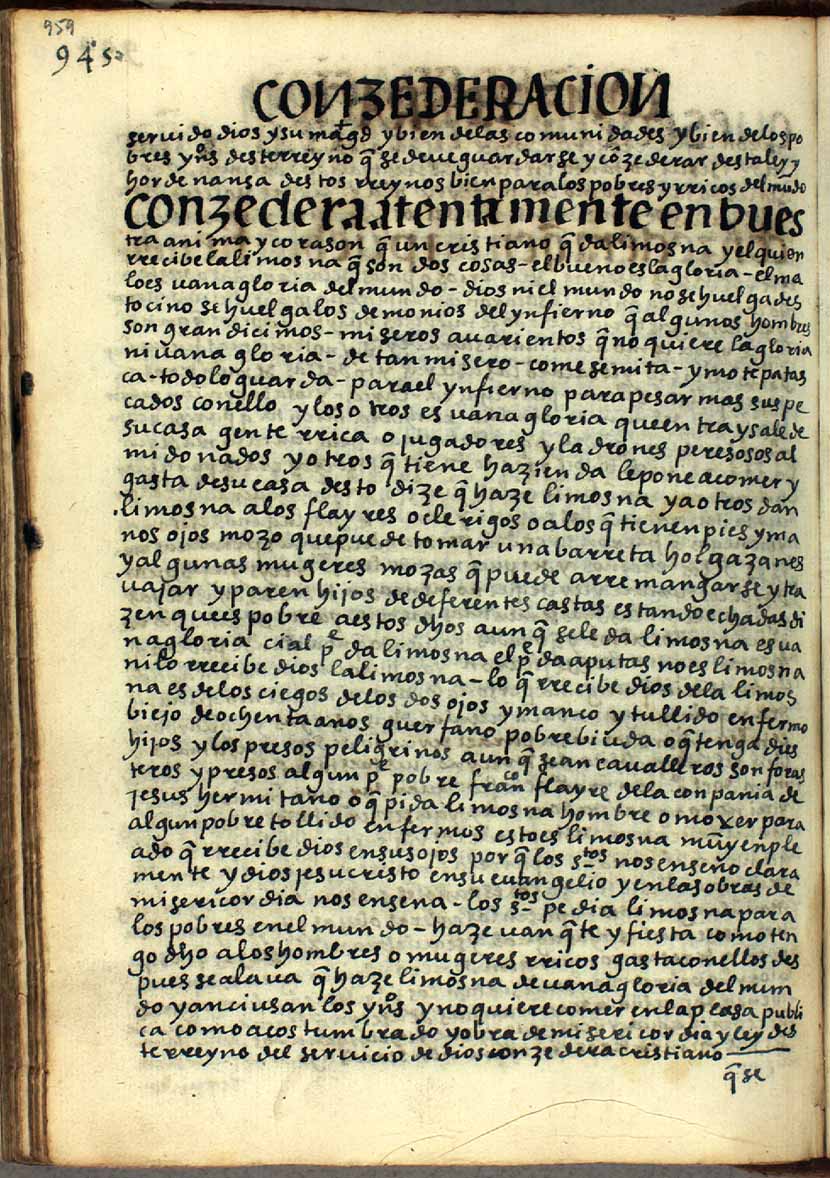 959
945
CONZEDERACION
servido dios y su magd y bien delas comunidades y bien delos po
bres yns deste rreyno q̃ se deve guardarse y cõzederar desta ley y
hordenansa destos rreynos bien para los pobres y rricos del mũdo
conzedera atentamente en bues
tra anima y corason q̃ un cristiano q̃ da limosna y el quien
rrecibe la limosna q̃ son dos cosas - el bueno es la gloria - el ma
lo es vana gloria del mundo - dios ni el mundo no se huelga des
to cino se huelga los demonios del ynfierno q̃ algunos hombres
son grandicimos - miseros avarientos q̃ no quiere la gloria
ni vana gloria - de tan misero - come semita - y mote patas
ca - todo lo guarda - para el ynfierno para pesar mas sus pe
cados con ello y los otros es vana gloria que entra y sale de
su casa gente rrica o jugadores y ladrones peresosos al
midonados y otros q̃ tiene hazienda le pone a comer y
gasta de su casa desto dize q̃ haze limosna y a otros dan
limosna a los flayres o clerigos o a los q̃ tienen pies y ma
nos ojos mozo que puede tomar una barreta holgazanes
y algunas mugeres mozas q̃ puede arremangarse y tra
vajar y paren hijos de deferentes castas estando echadas di
zen que es pobre a estos dhos aunq̃ se le da limosna es va
nagloria ci al pe da limosna el pe da a putas no es limosna
ni lo rrecibe dios la limosna - lo q̃ rrecibe dios de la limos
na es delos ciegos delos dos ojos y manco y tullido enfermo
biejo de ochenta anos guerfano pobre biuda o q̃ tenga dies
hijos y los presos peligrinos aunq̃ sean cavalleros son foras
teros y presos algun pe pobre franco flayre dela conpania de
jesus hermitano o q̃ pida limosna hombre o moxer para
algun pobre tollido enfermos esto es limosna muy enple
ado q̃ rrecibe dios en sus ojos por q̃ los stos nos enseño clara
mente y dios jesucristo en su evangelio y en las obras de
misericordia nos ensena - los stos pedia limosna para
los pobres en el mundo - haze vanq̃te y fiesta como ten
go dho a los hombres o mugeres rricos gasta con ellos des
pues se alava q̃ haze limosna de vana gloria del mun
do y anciusan los yns y no quiere comer en la plasa publi
ca como acostumbrado y obra de misericordia y ley des
te rreyno del servicio de dios conzedera cristiano
q̃ se